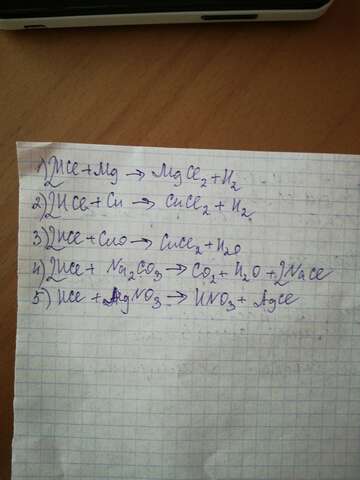 1) 2HCl + Mg → MgCl₂ + H₂
2) 2HCl + Cu → CuCl₂ + H₂
3) 2HCl + CuO → CuCl₂ + H₂O
4) 2HCl + Na₂CO₃ → CO₂ + H₂O + 2NaCl
5) HCl + AgNO₃ → HNO₃ + AgCl